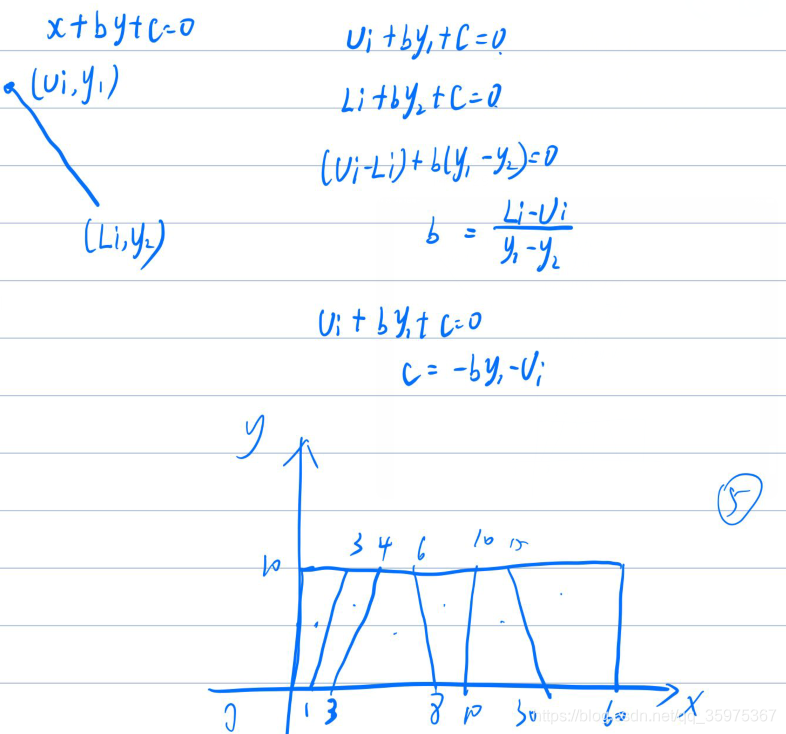 x+by+c=0
Ui+by₁+C=0
(Ui,y₁)
Li+by₂+C=0
(Ui-Li)+b(y₁-y₂)=0
(Li,y₂)
b = Li-Ui / y₁-y₂
Ui+by₁+C=0
C=-by₁-Ui
y
5
10 3 4 6 10 15
0 1 3 8 10 30 60 X
https://blog.csdn.net/qq_35975367